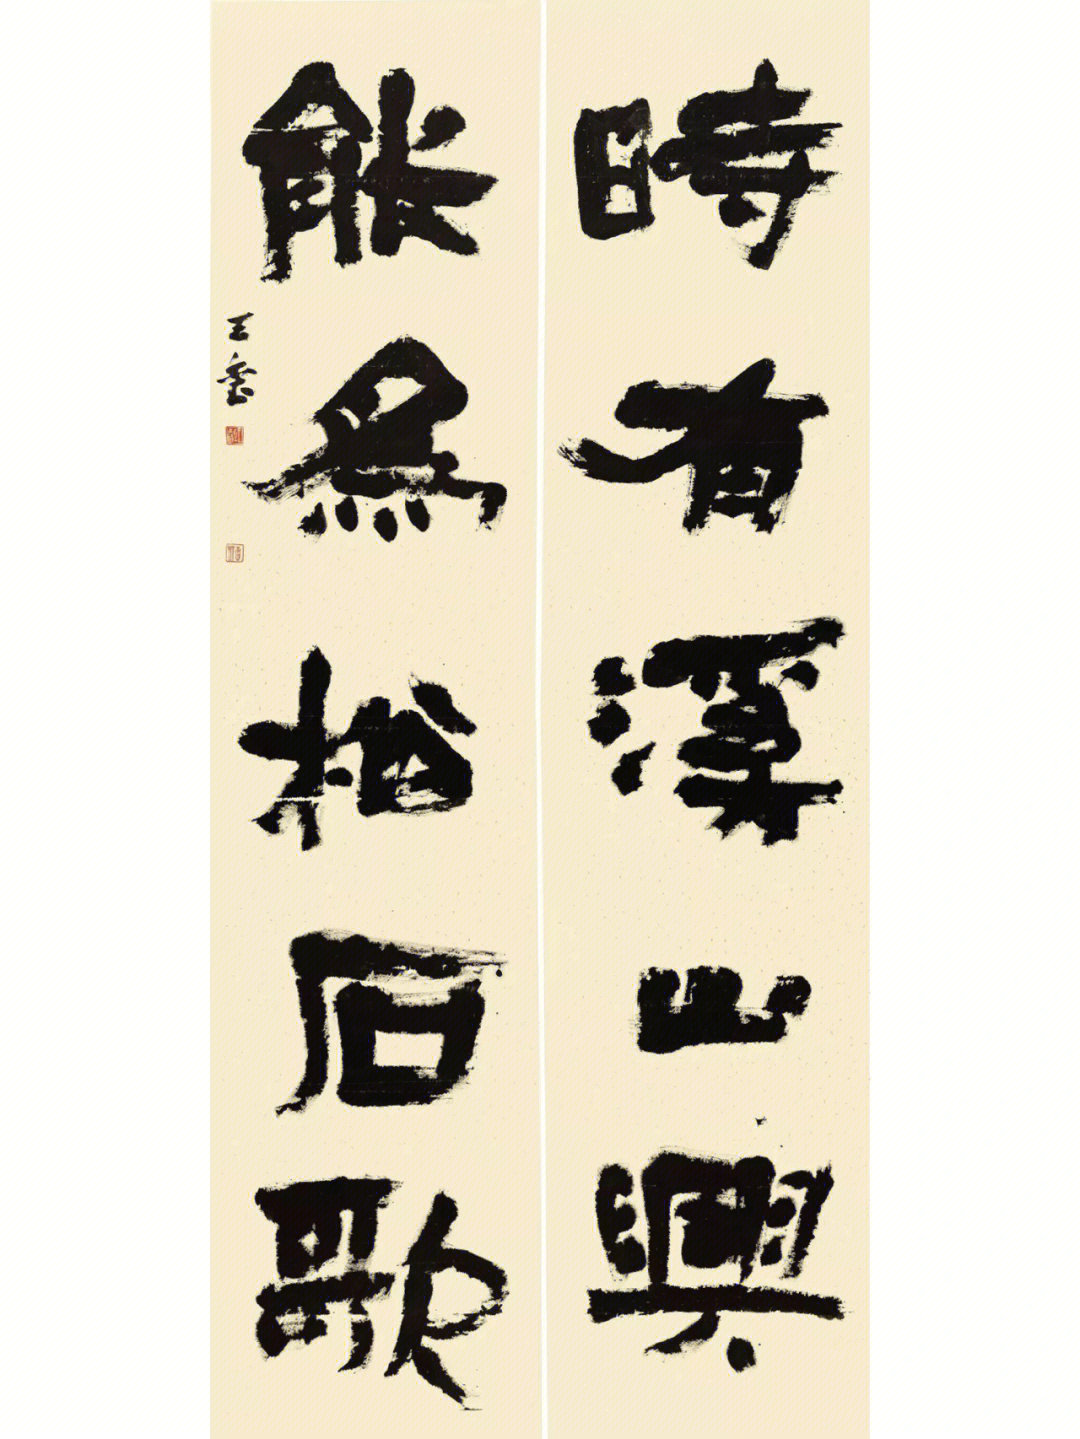 時有溪山興
能為松石歌
王登